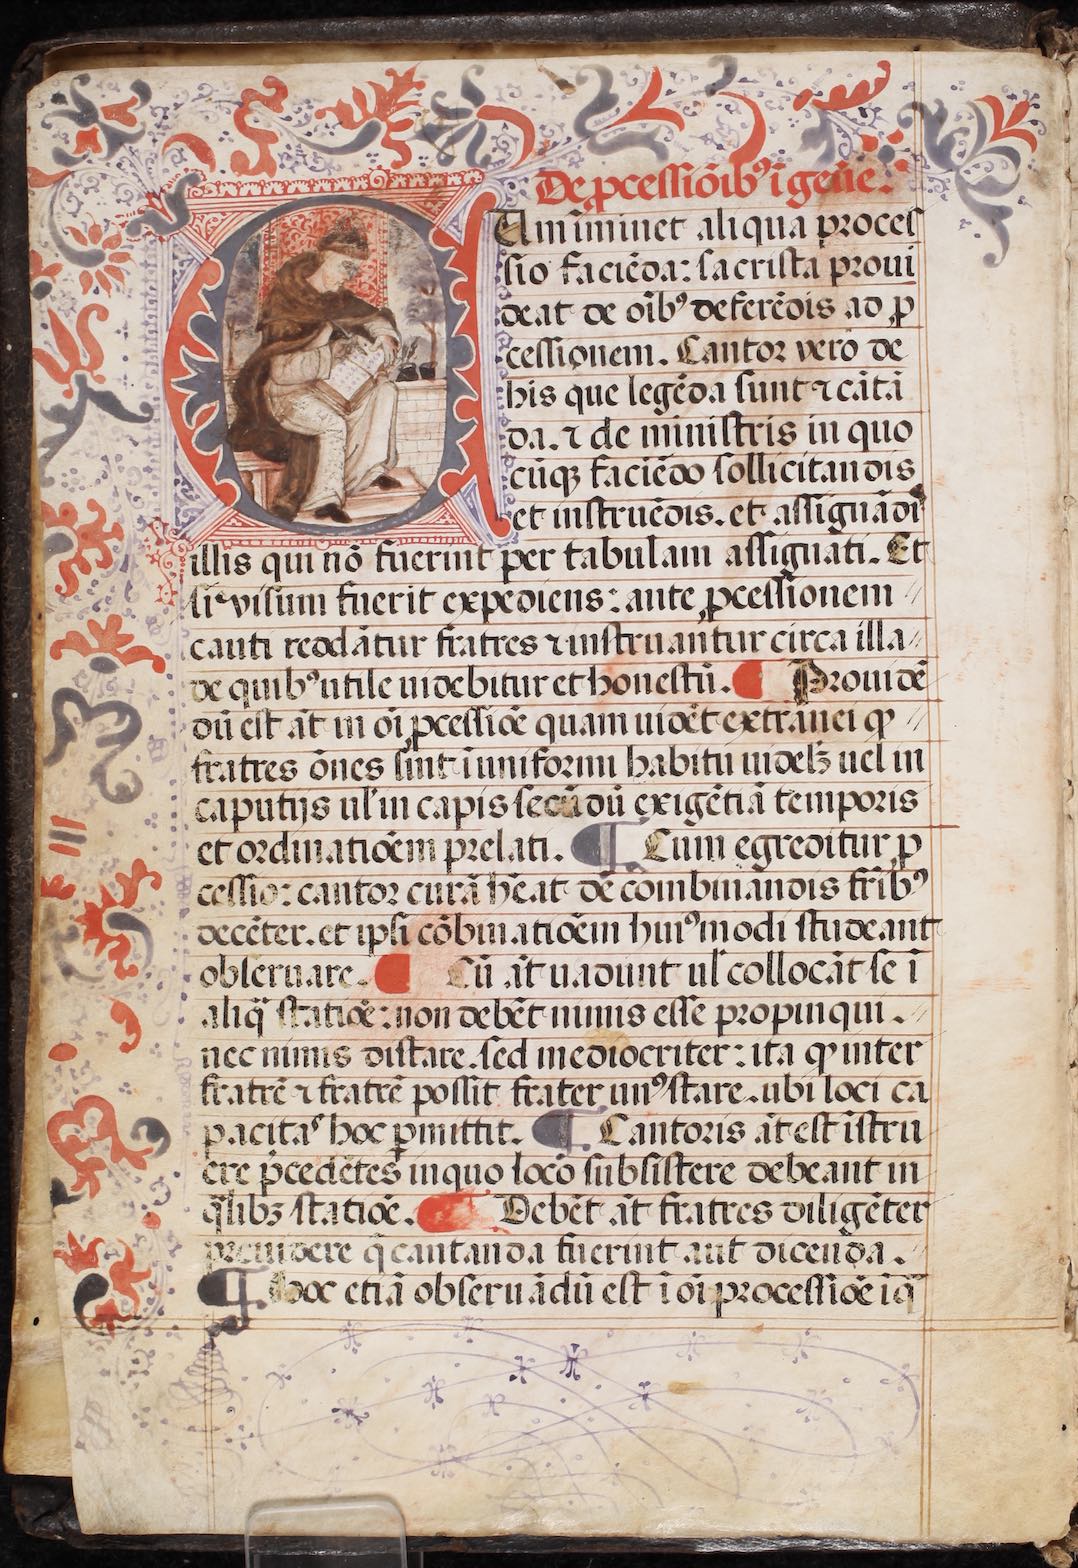 De ꝓcessiōibꝰ ī gen̄e.
Cum īminet aliqua proces
sio faciēda: sacrista proui
deat de oībꝰ deferēdis ad ꝓ
cessionem. Cantor vero de
his que legēda sunt ⁊ cātā
da. ⁊ de ministris in quo
cūqꝫ faciēdo sollicitandis
et instruēdis. et assignādis
illis qui nō fuerint per tabulam assignati. Et
si visum fuerit expediens: ante ꝓcessionem
cauti reddātur fratres ⁊ instruantur circa illa
de quibꝰ utile uidebitur et honestū. ¶ Prouidē
dū est āt in oī ꝓcessiōe quam uidēt extranei ꝙ
fratres ōnes sint ī uniformi habitu uidelꝫ uel in
caputijs ul̓ in capis secūdū exigētiā temporis
et ordinatiōem prelati. ¶ Cum egreditur ꝓ
cessio: cantor curā hēat de combinandis frībꝰ
decēter. et ipsi cōbinatiōem huiꝰmodi studeant
obseruare. ¶ Cū āt uadunt ul̓ collocāt se ī
aliq̄ statiōe: non debēt nimis esse propinqui.
nec nimis distare. sed mediocriter: ita ꝙ inter
fratrē ⁊ fratrē possit frater unꝰ stare. ubi loci ca
pacitas hoc ꝑmittit. ¶ Cantoris āt est īstru
ere p̄cedētes in quo loco subsistere debeant in
q̄libꝫ statiōe. ¶ Debēt āt fratres diligēter
preuidere q̄ cantanda fuerint aut dicenda.
¶ Hoc etiā obseruādū est ī oī processiōe ī q̄